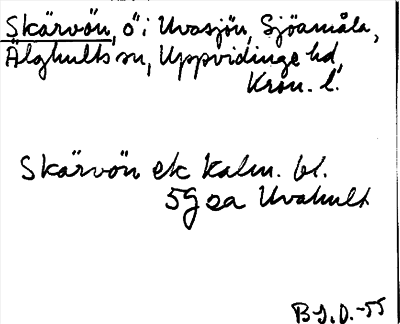 Skärvön, ö i Uvasjön, Sjöamåla,
Älghults sn, Uppvidinge hd,
Kron. l.
Skärvön ek Kalm. bl.
5G sa Uvahult